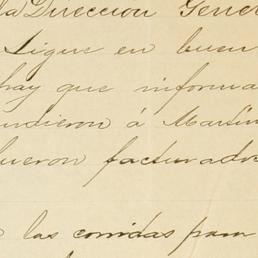 la Direccion Gener
Sigue en buen
hay que informa
undieron á Martin
fueron facturado
las comidas para